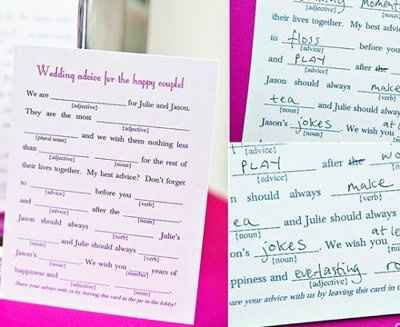 Wedding advice for the happy couple!
We are ____________ for Julie and Jason.
[adjective]
They are the most ____________
[adjective]
____________ and we wish them nothing less
[plural noun]
than ____________ ____________ for the rest of
[adjective] [noun]
their lives together. My best advice? Don't forget
to ____________ before you ____________
[advice] [verb]
and ____________ after the ____________
[advice] [noun]
Jason should always ____________ Julie's
[verb]
____________ and Julie should always ____________
[noun] [verb]
Jason's ____________. We wish you ____________ years of
[noun] [number]
happiness and ____________ ____________
[adjective] [noun]
Share your advice with us by leaving this card in the jar in the lobby!
moment
[adjective]
their lives together. My best advice
to floss before you
[advice]
and PLAY after the
[advice]
Jason should always make
[verb]
tea and Julie should always
[noun]
Jason's jokes. We wish you at
[noun]
PLAY after the wo
[advice]
n should always make
[verb]
ea and Julie should alwa
[noun]
on's jokes. We wish you at le
[noun]
ppiness and everlasting ro
[adjective]
are your advice with us by leaving this card in t